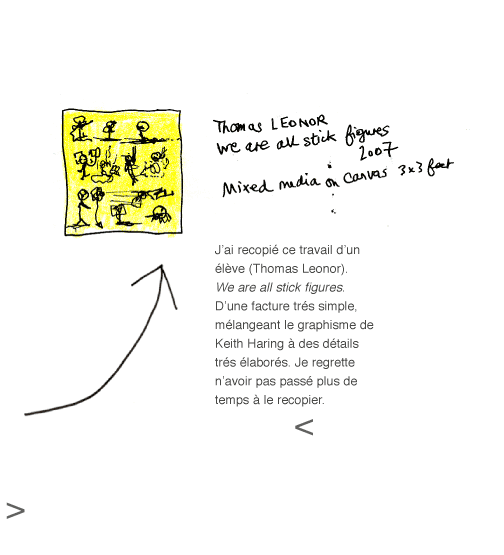 Thomas LEONOR
We are all stick figures
2007
Mixed media on canvas 3x3 feet
J'ai recopié ce travail d'un
élève (Thomas Leonor).
We are all stick figures.
D'une facture trés simple,
mélangeant le graphisme de
Keith Haring à des détails
trés élaborés. Je regrette
n'avoir pas passé plus de
temps à le recopier.
<
>